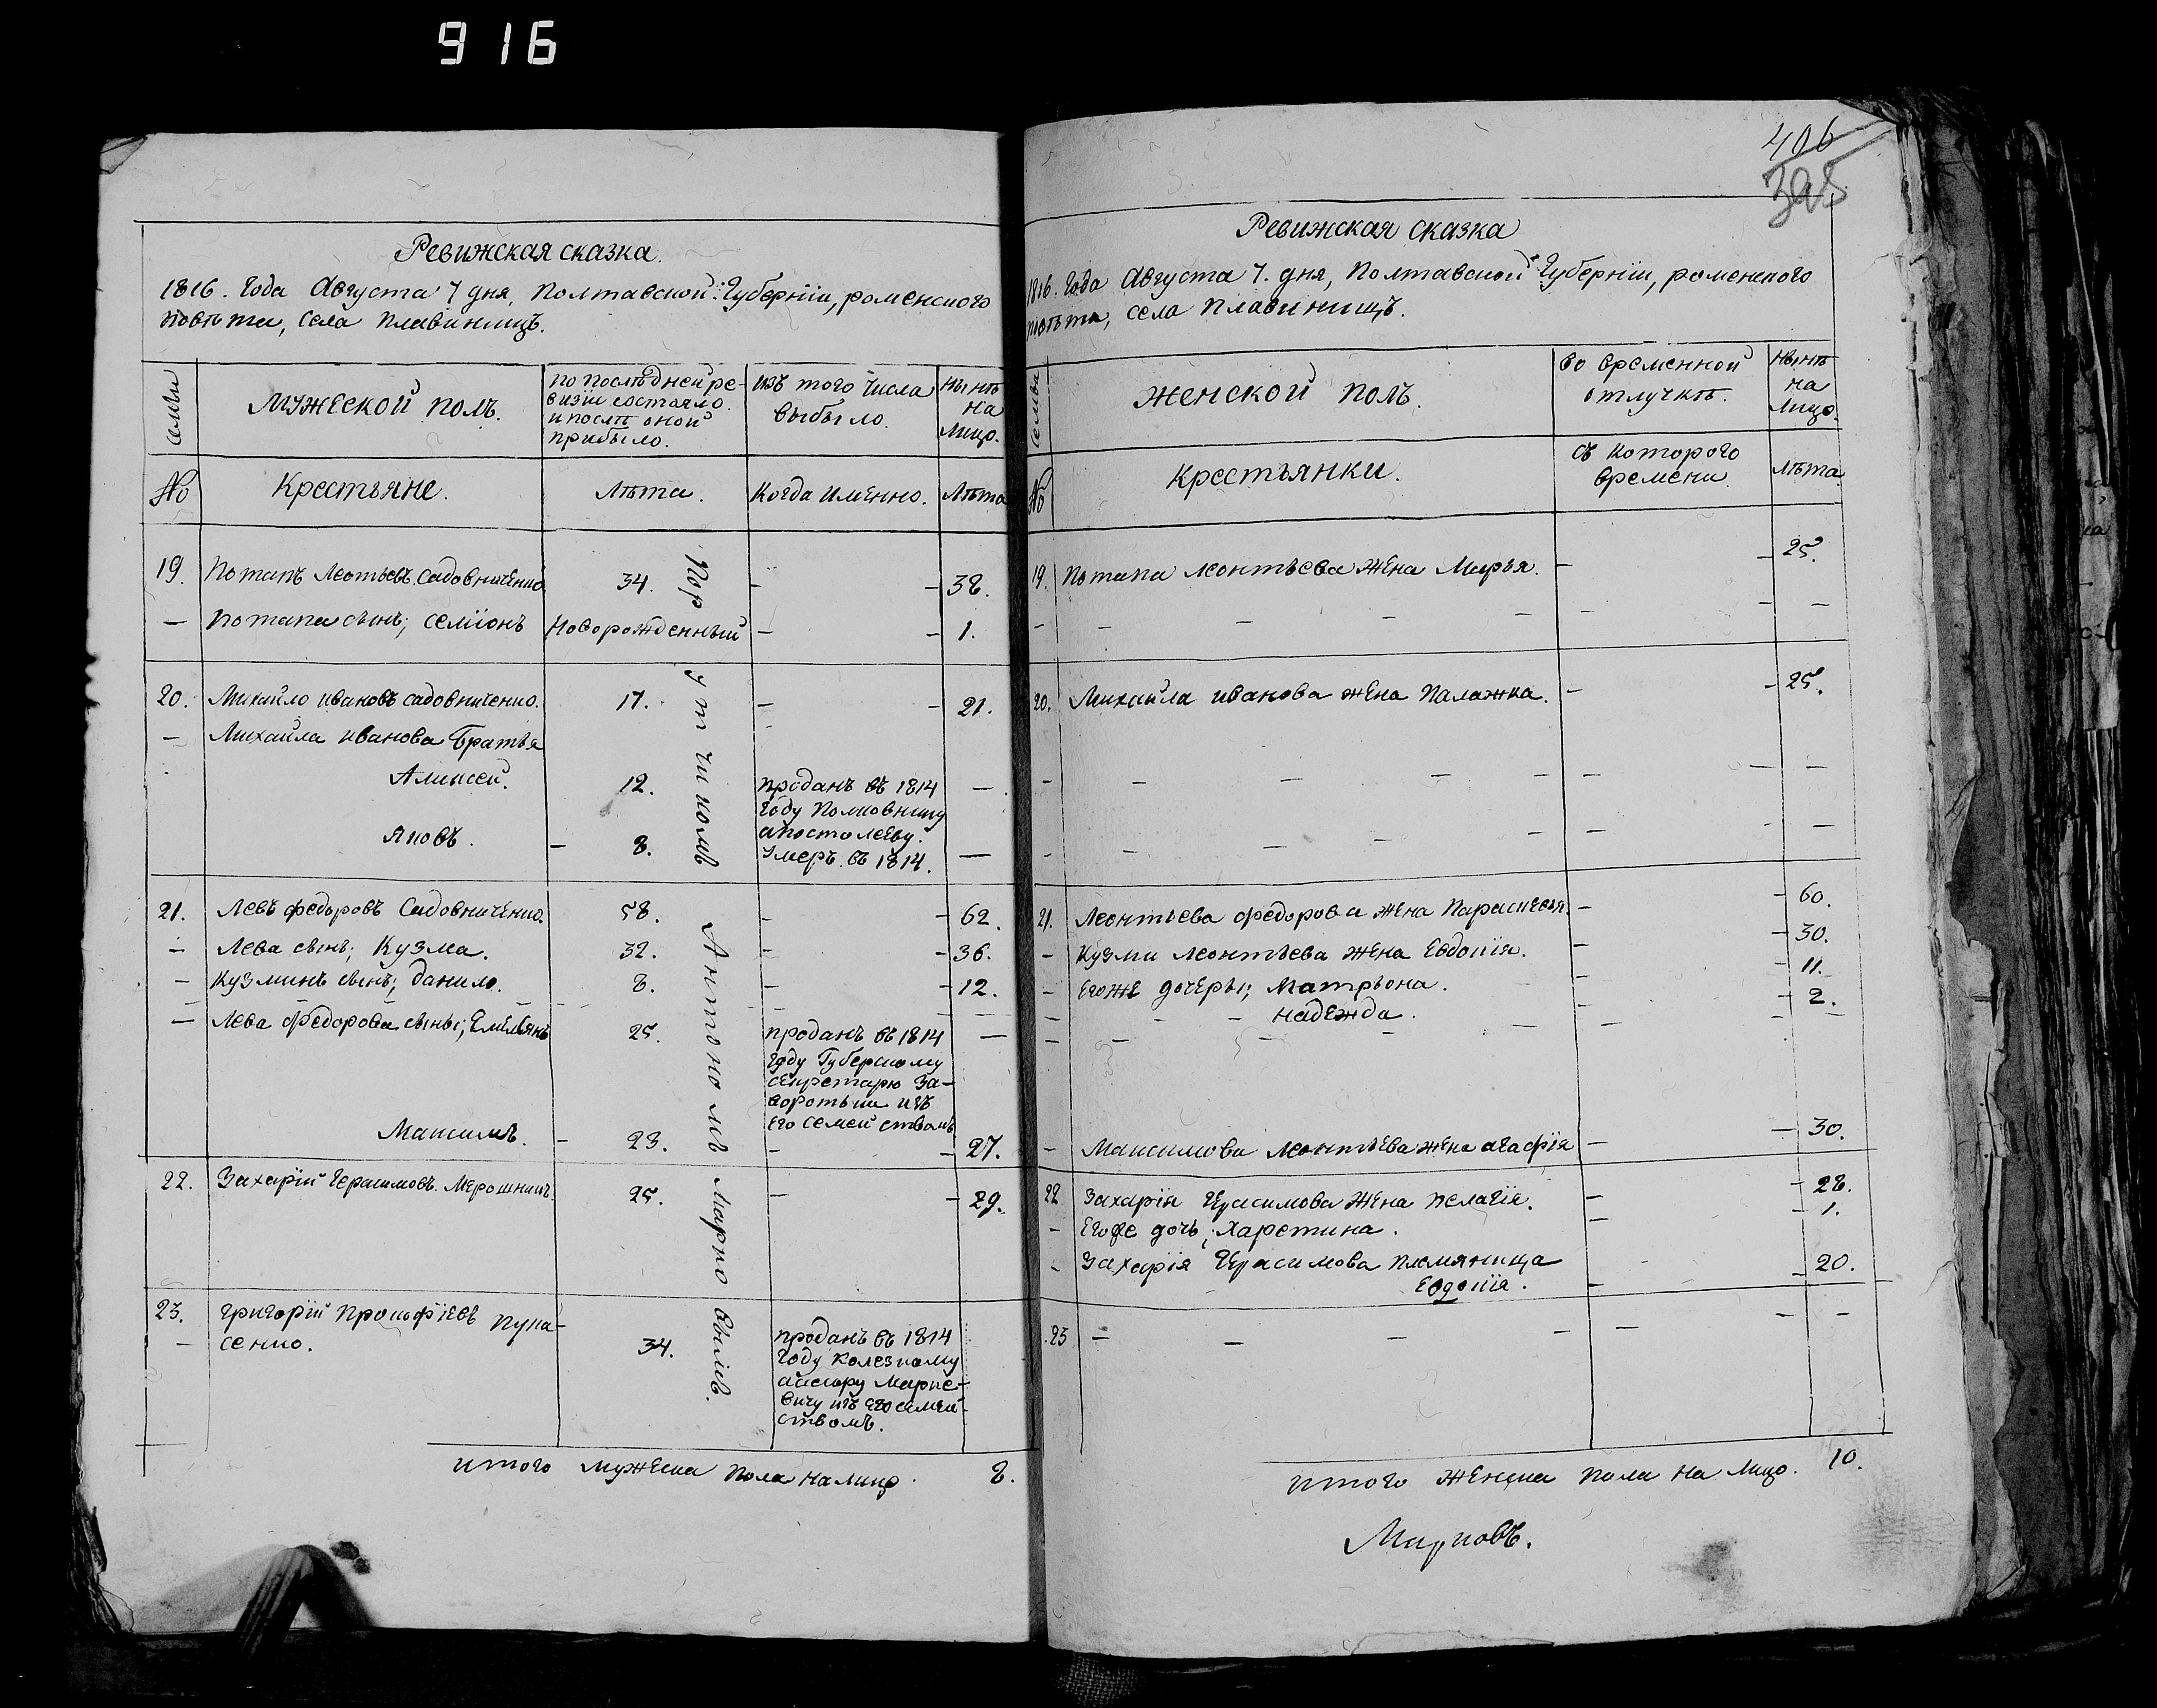 916
Ревижская сказка.
1816. Года Августа 7 дня, Полтавской Губернїи, роменского
повѣта, села Плавинищъ.
семьи
Мужеской полъ.
по послѣдней ре-
визіи состояло.
и послѣ оной
прибыло.
изъ того числа
выбыло.
Нынѣ
на
Лицо.
№
Крестьяне.
Лѣта.
Когда именно.
Лѣта
19. Потапъ Леотьевъ Садовниченко. 34. — — 38.
— Потапа сынъ; Семїонъ Новорожденный — — 1.
20. Михайло ивановъ садовниченко. 17. — — 21.
— Михайла иванова Братья
Алексей. 12. проданъ въ 1814 —
Году Полковнику
апостолеву.
Яковъ. — 8. Умеръ. въ 1814. —
21. Левъ федоровъ Садовниченко. 58. — — 62.
— Лева сынъ; Кузма. 32. — — 36.
— Кузминъ сынъ; Данило. 8. — — 12.
— Лева Федорова сыны; Емельянъ 25. проданъ въ 1814 —
Году Губерскому
секретарю За-
воротьки изъ
его семействомъ
Максимъ. — 23. — — 27.
22. Захарїй Герасимовъ Мерошникъ 25. — — 29.
23. Григорїй Прокофїевъ Пука-
— сенко. 34. проданъ въ 1814
Году Колезкому
асесору Марке-
вичу изъ его семей-
ствомъ.
Итого мужеска пола налицо. 8.
Порутчикомъ Антономъ Марковымъ.
406
395
Ревижская сказка
1816. Года Августа 7. дня, Полтавской Губернїи, роменского
повѣта, села Плавинищъ.
семьи
Женской полъ.
во временной
отлучкѣ.
Нынѣ
на
Лицо.
№
Крестьянки.
съ которого
времени.
Лѣта
19. Потапа Леонтьева жена Марья. — — 25.
20. Михайла иванова жена Палажка. — — 25.
21. Леонтьева федорова жена Параскевья. — — 60.
— Кузми Леонтьева жена Евдокїя. — — 30.
— Егоже дочеры; Матрьона. — — 11.
— надежда. — 2.
— Максимова Леонтьева жена агафїя — — 30.
22 Захарїя Герасимова жена пелагїя. — — 28.
— Егоже дочь; Харетина. — — 1.
— Захарїя Герасимова племяница
Евдокїя. — — 20.
23 — — — — — — —
Итого женска пола на лицо. 10.
Марковъ.